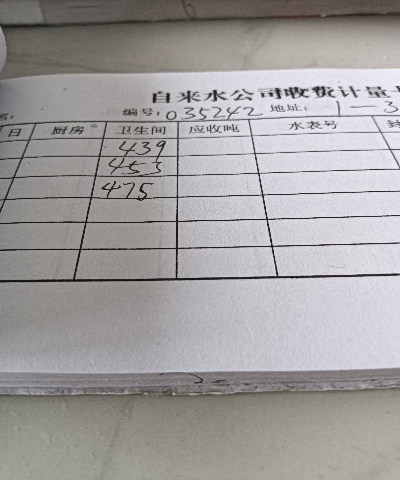 自来水公司收费计量
编号：035242 地址：1—3
日 厨房 卫生间 应收吨 水表号
439
453
475